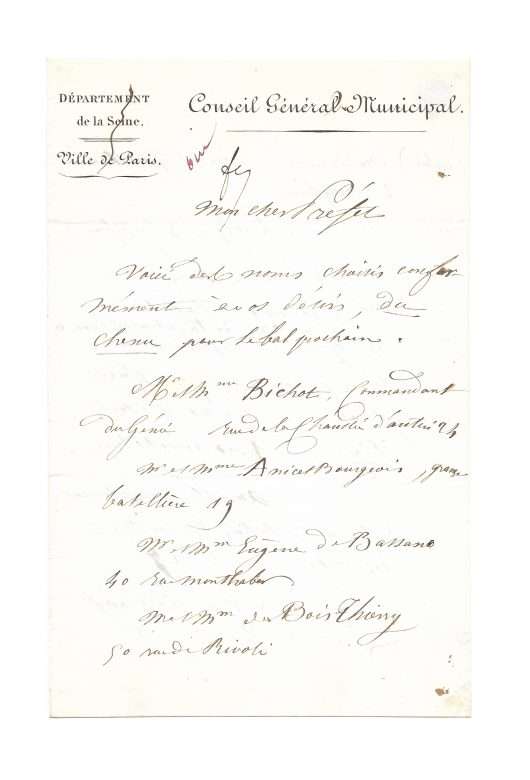 DÉPARTEMENT
de la Seine.
Ville de Paris.
Conseil Général Municipal.
oui
Mon cher Préfet
Voici des noms choisis confor-
mément à vos désirs, du
chenu pour le bal prochain.
Mr et Mme Bichot, Commandant
du Génie rue de la Chaussée d'antin 24
Mr et Mme Anicet Bourgeois, grange
batellière 19
Mr et Mme Eugène de Bassano
40 rue monthabor
Mr et Mme du Bois Thierry
50 rue de Rivoli